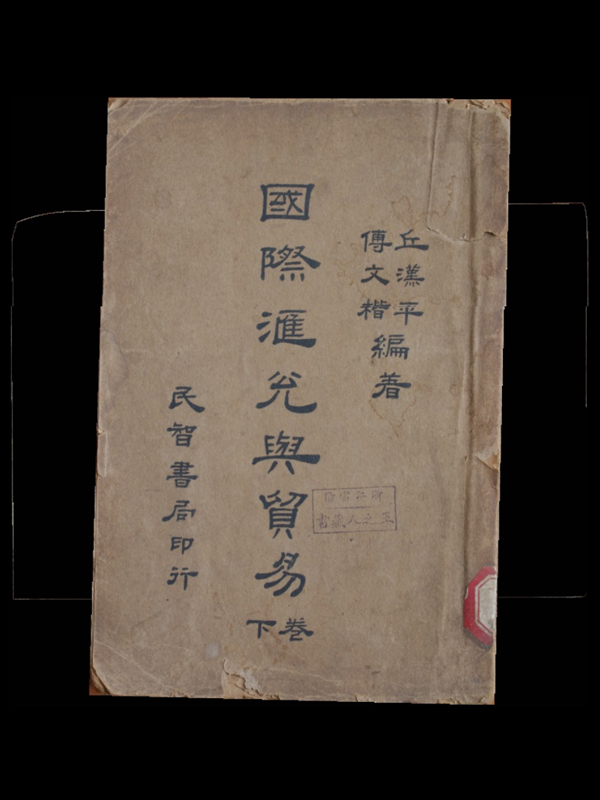 丘漢平
傅文楷
編著
國際滙兌與貿易
卷下
民智書局印行